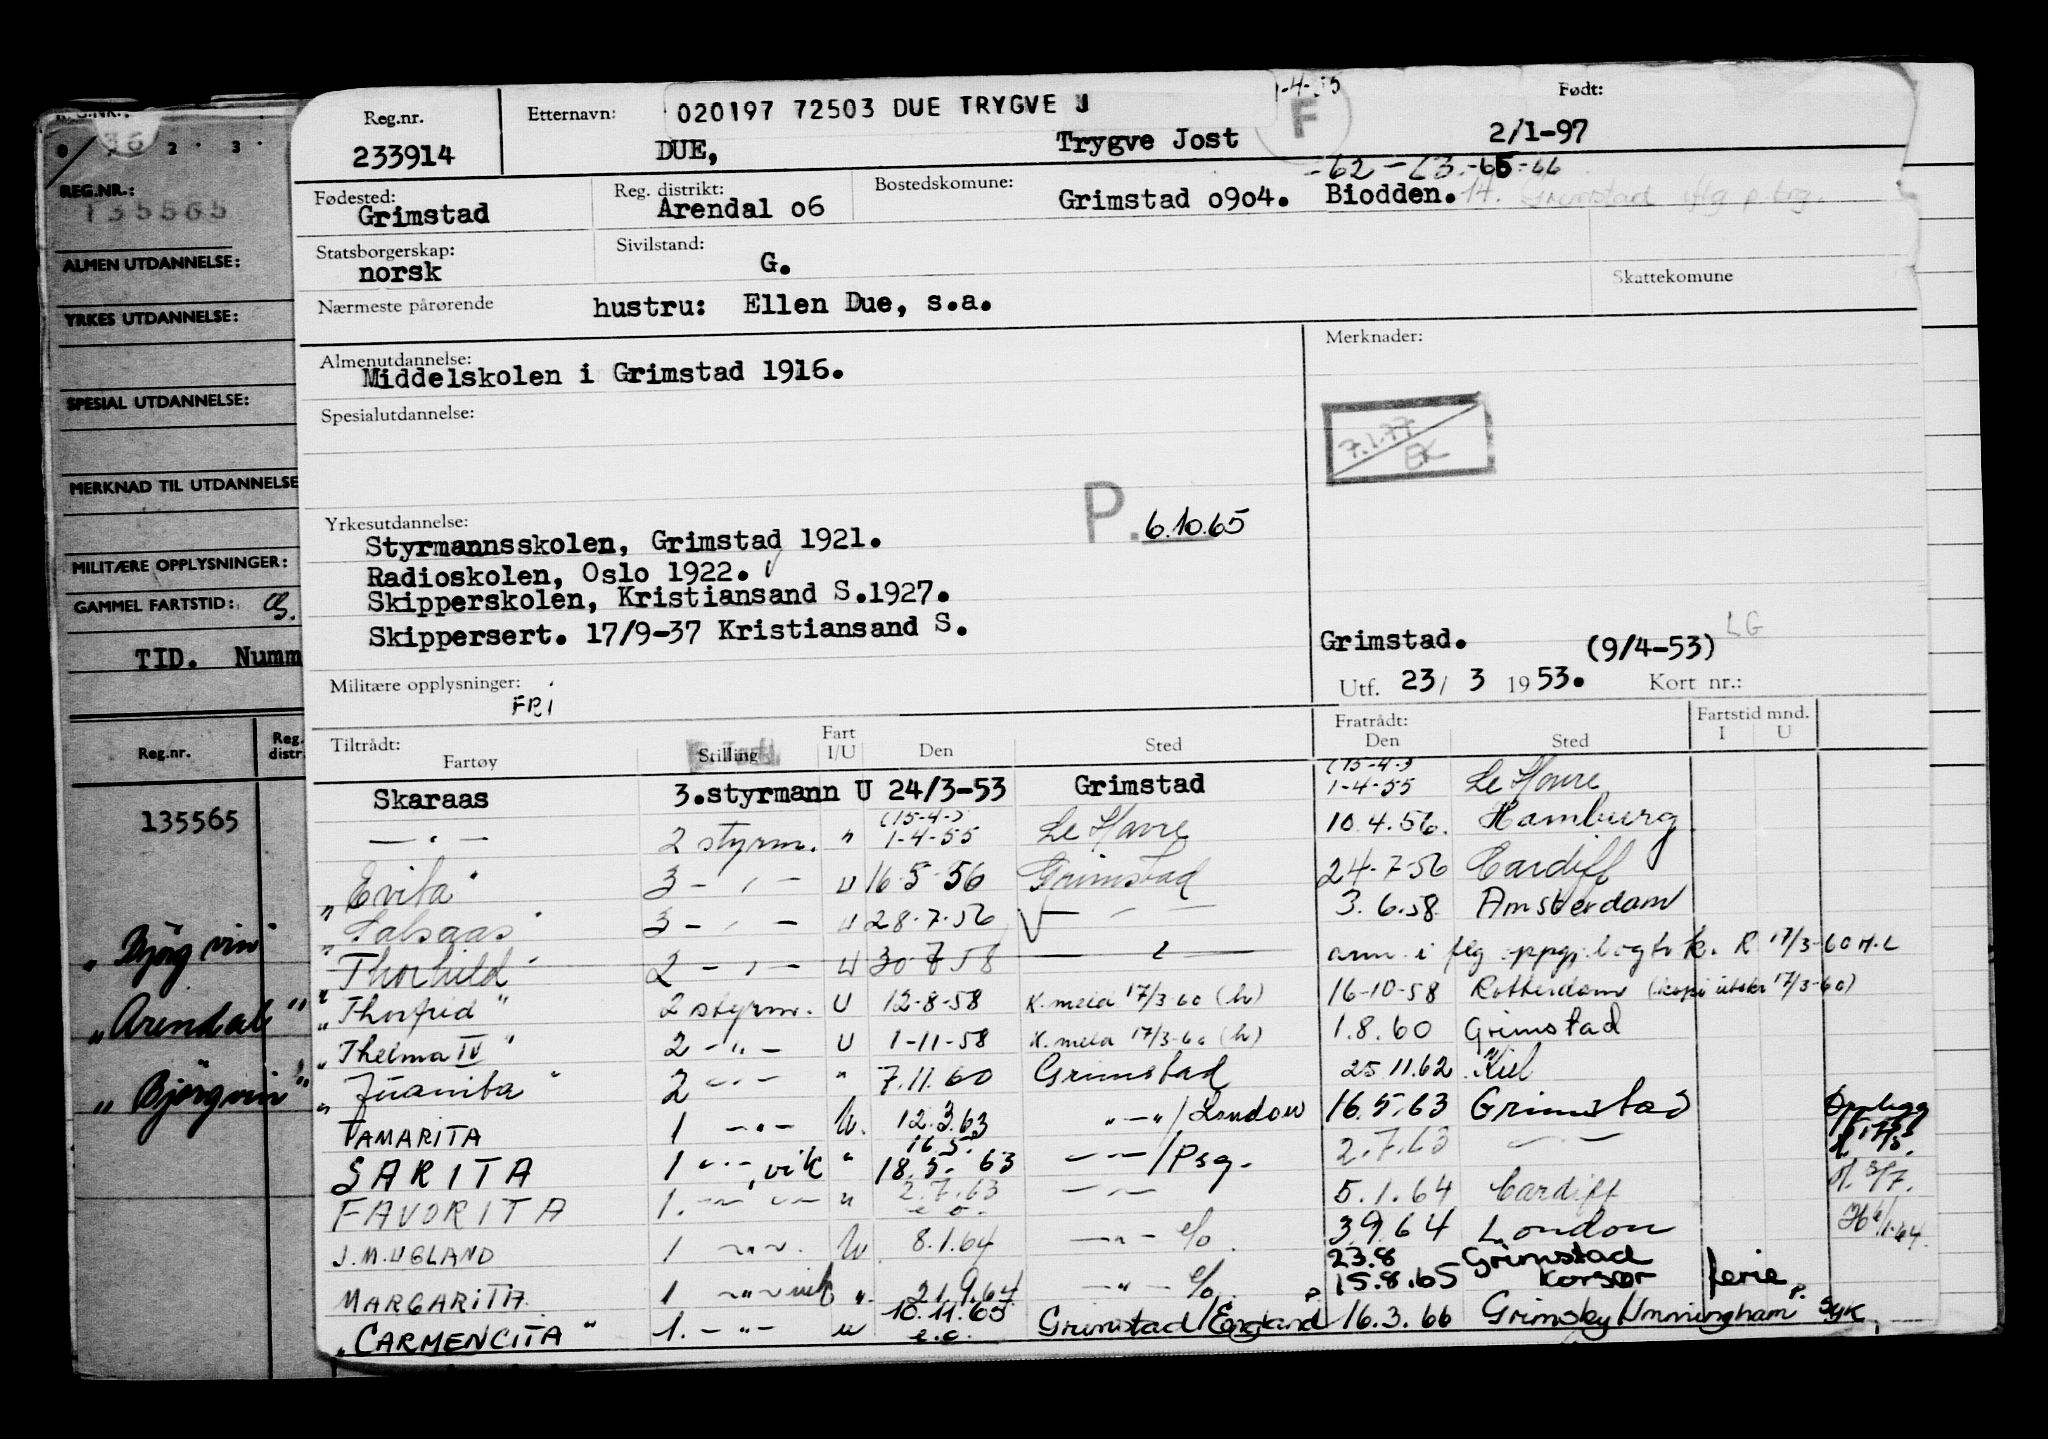 Reg.nr.
233914
Etternavn:
020197 72503 DUE TRYGVE J
DUE,
Trygve Jost
F
Født:
2/1-97
-62-63-65-66
Fødested:
Grimstad
Reg. distrikt:
Arendal 06
Bostedskomune:
Grimstad 0904. Biodden.
Statsborgerskap:
norsk
Sivilstand:
G.
Skattekomune
Nærmeste pårørende
hustru: Ellen Due, s.a.
Almenutdannelse:
Middelskolen i Grimstad 1916.
Merknader:
7.1.77
EK
Spesialutdannelse:
P. 6.10.65
Yrkesutdannelse:
Styrmannsskolen, Grimstad 1921.
Radioskolen, Oslo 1922.
Skipperskolen, Kristiansand S.1927.
Skippersert. 17/9-37 Kristiansand S.
Grimstad. (9/4-53) LG
Utf. 23/ 3 1953. Kort nr.:
Militære opplysninger:
FRI
Tiltrådt:
Fartøy Stilling Fart I/U Den Sted
Fratrådt:
Den Sted
Fartstid mnd.
I U
Skaraas 3.styrmann U 24/3-53 Grimstad (15-4-) 1-4-55 Le Havre
— " — 2 styrm. " (15-4-) 1-4-55 Le Havre 10.4.56. Hamburg
"Evita" 3 - " - U 16-5-56 Grimstad 24-7-56 Cardiff
"Salsaas" 3 - " - U 28-7-56 — " — 3.6.58 Amsterdam
"Thorhild" 2 - " - U 30-7-58 — " — ann. i flg. R 17/3-60 H.L
"Thorfrid" 2 styrm. U 12-8-58 K. meld 17/3-60 (h) 16-10-58 Rotterdam (kopi utskr 17/3-60)
"Thelma IV" 2 - " - U 1-11-58 K. meld 17/3-60 (h) 1.8.60 Grimstad
"Juanita" 2 - " - " 7.11.60 Grimstad 25.11.62 Kiel
TAMARITA 1 - " - U. 12.3.63 " - " / London 16.5.63 Grimstad Opplegg
SARITA 1 - " -, vik " 16.5. 18.5.63 - " - / Psg. 2.7.63 — " —
FAVORITA 1. - " - " 2.7.63 e.o. - " - 5.1.64 Cardiff
J.M.UGLAND 1 - " - U 8.1.64 - " - e/o. 3.9.64 London
MARGARITA 1 - " - vik ". 21.9.64 - " - e/o. 23.8 15.8.65 Grimstad Korsør ferie
"CARMENCITA" 1. - " - u 10.11.65 e.o. Grimstad/England P. 16.3.66 Grimsby/Immingham P. syk.
REG.NR.:
135565
ALMEN UTDANNELSE:
YRKES UTDANNELSE:
SPESIAL UTDANNELSE:
MERKNAD TIL UTDANNELSE
MILITÆRE OPPLYSNINGER:
GAMMEL FARTSTID:
TID. Numm
Reg.nr.
Reg. distr.
135565
"Bjørgvin"
"Arendal"
"Bjørgvin"